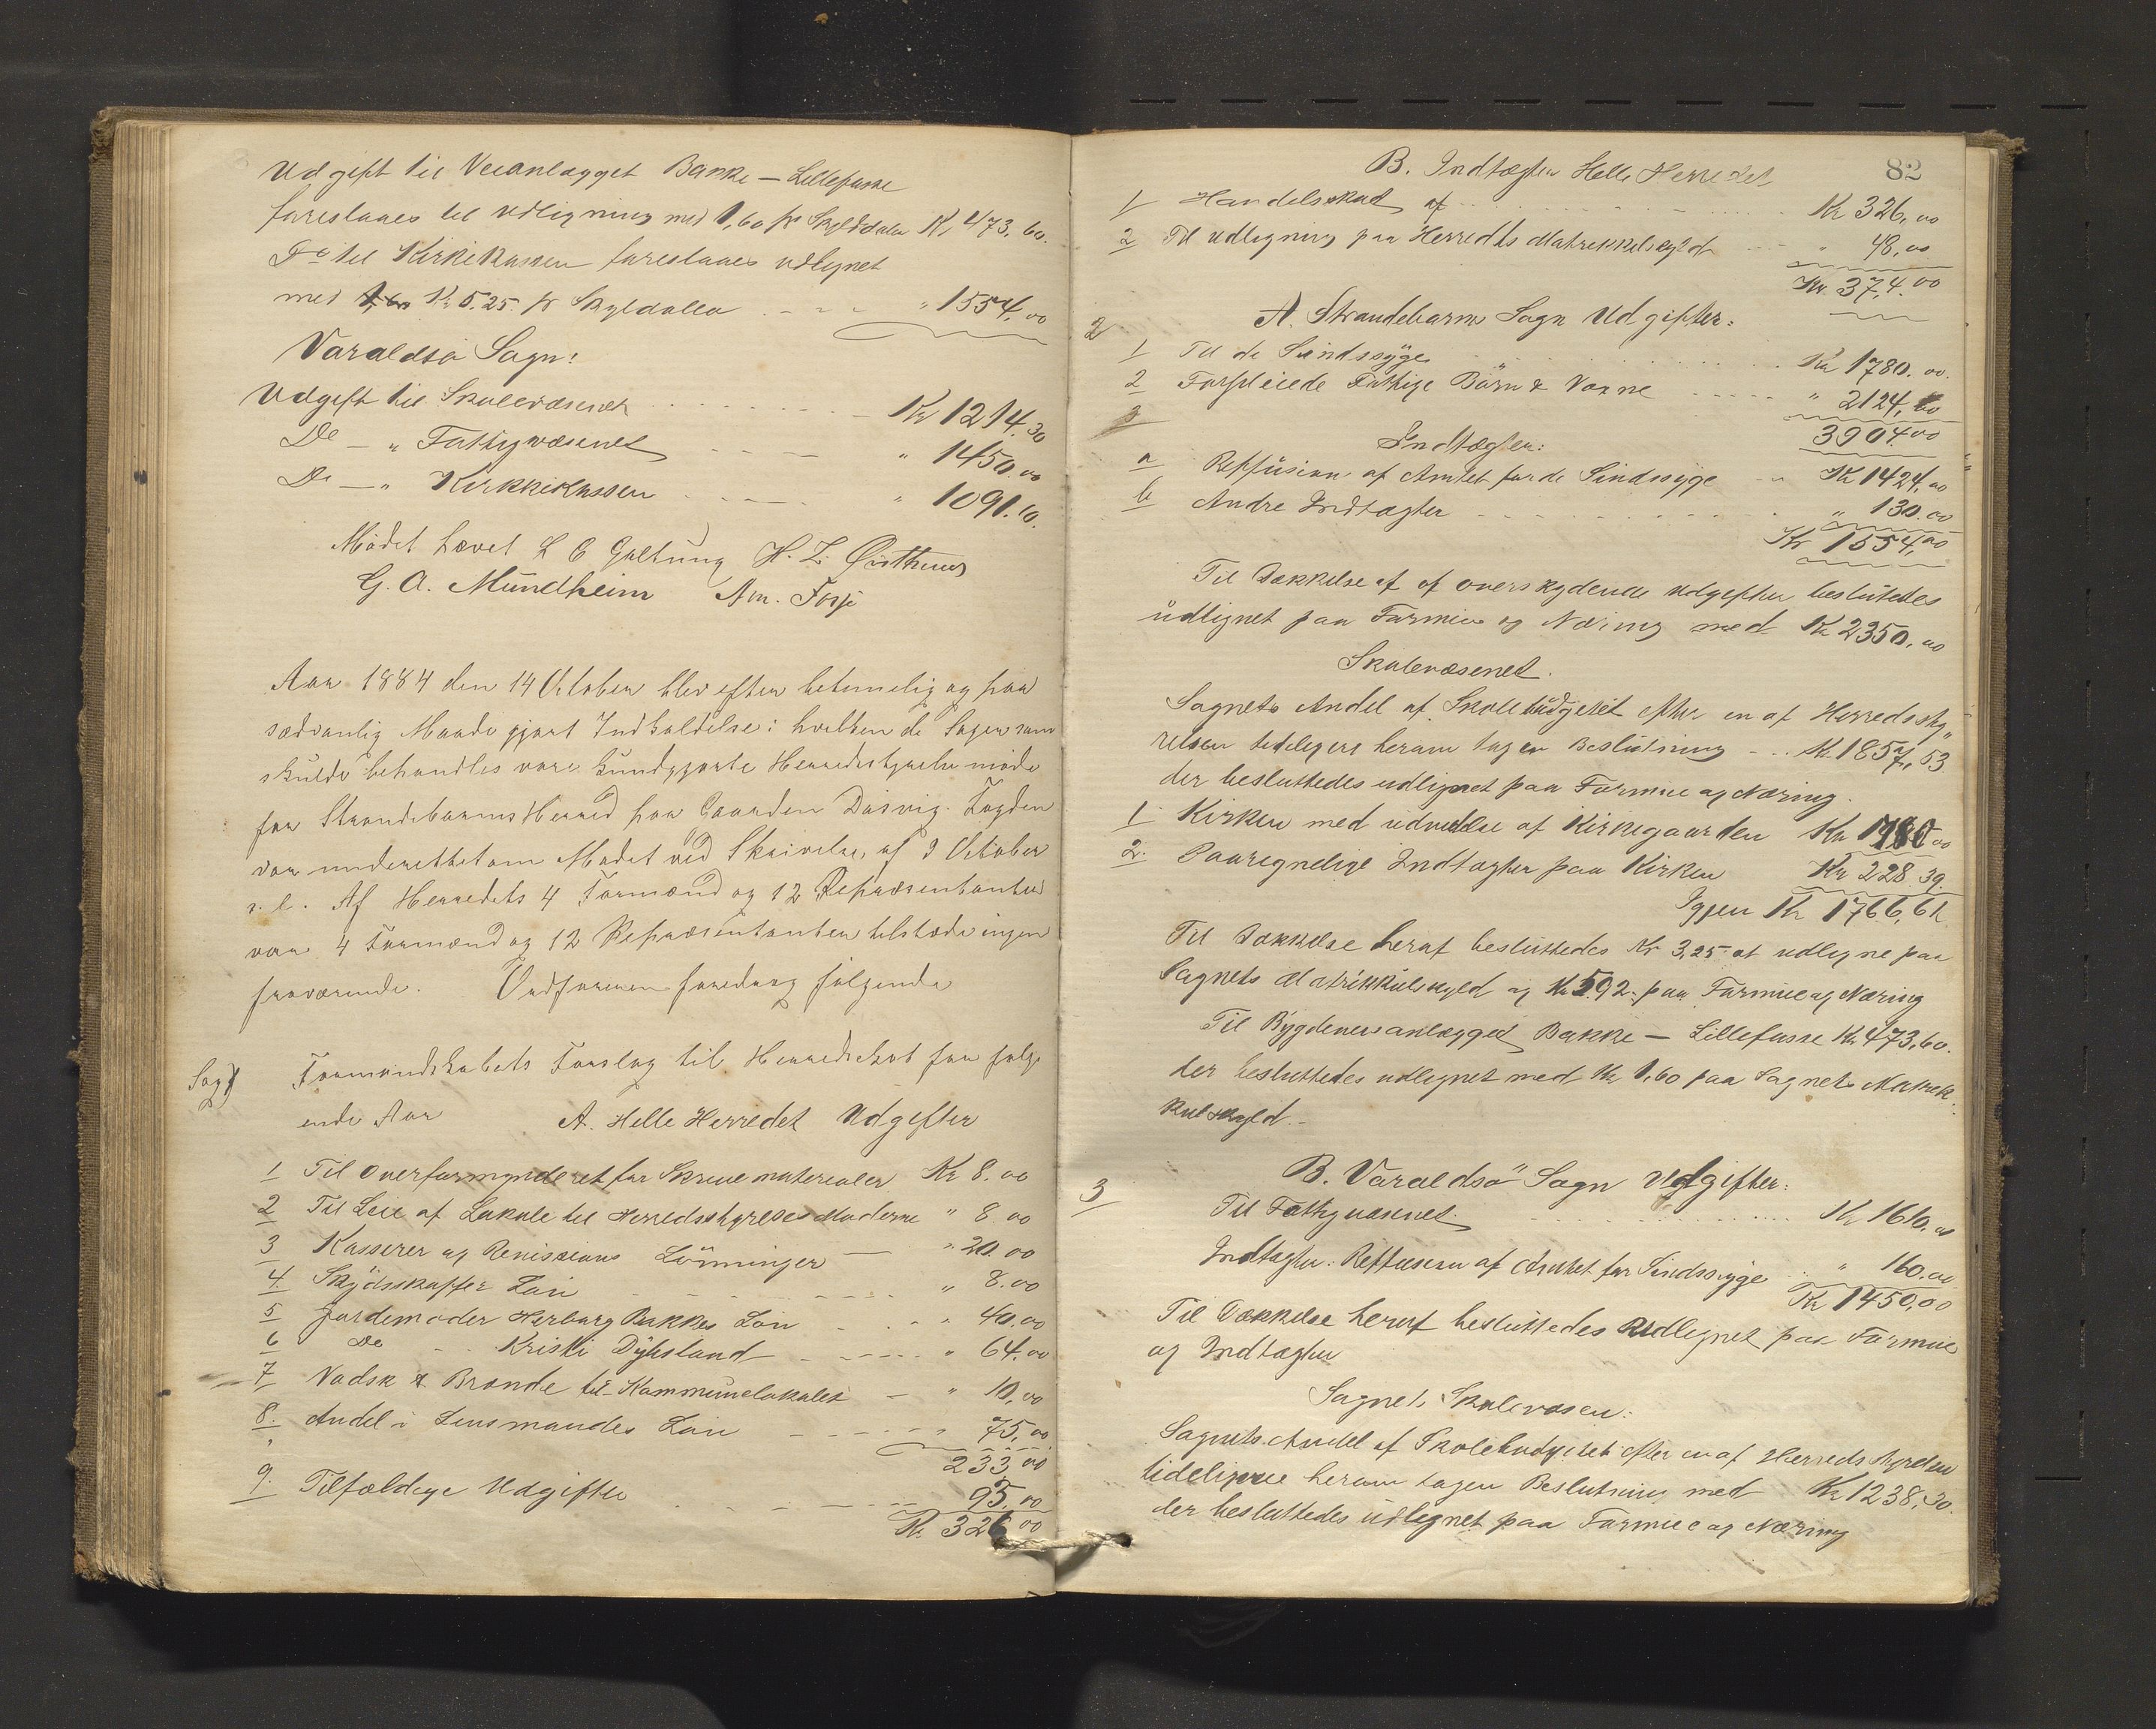 Udgift til Veianlægget Bakke — Lillefosse
foreslaaes til udligning med 1,60 pr Skylddaler Kr 473,60.
Do til Kirkekassen foreslaaes udlignet
med Kr 5.25 pr Skyldaller " 1554,00
Varaldsö Sogn:
Udgift til Skolevæsenet Kr 1214,30
Do — " Fattigvæsenet " 1450.00
Do — " Kirkekassen " 1091.10.
Mödet hævet L E Galtung H. Z. Östhuus
G. A. Mundheim Am. Fosse
Aar 1884 den 14 October blev efter betimelig og paa
sædvanlig Maade gjort Indkaldelse i hvilken de Sager som
skulde behandles vare kundgjorte Herredsstyrelse möde
for Strandebarms Herred paa Gaarden Dösvig. Fogden
var underrettet om Mödet ved Skrivelse af 9 October
s. l. Af Herredets 4 Formænd og 12 Repræsentanter
var 4 Formænd og 12 Repræsentanter tilstede ingen
fraværende. Ordföreren foredrog fölgende
Sag 1 Formandskabets Forslag til Herredsskat for fölg-
ende Aar A. Helle Herredet Udgifter
1 Til Overformynderiet for Skrivematerialer Kr 8.00
2 Til Leie af Lokale til Herredsstyrelses Möderne " 8.00
3 Kasserer og Revisions Lönninger — " 20.00
4. Skydsskaffer Lön " 8.00
5 Jordemoder Herborg Bakkes Lön " 40,00
6 Do Kristi Dybsland " 64.00
7 Vadsk & Brænde til Kommunelokalet — " 10,00
8. Andel i Lensmandes Lön " 75,00
233,00
9. Tilfældige Udgifter 93,00
Kr 326,00
82
B. Indtægter Helle Herredet
1 Handelsskat af Kr 326,00
2 Til udligning paa Herredts Matrikkelskyld " 48,00
Kr. 374.00
2 A. Strandebarms Sogn Udgifter:
1 Til de Sindssyge Kr 1780.00.
2 Forpleiede Fattige Börn & Voxne " 2124,00
3904.00
Indtægter:
a Reffusion af Amtet for de Sindssyge Kr 1424,00
b Andre Indtægter " 130.00
Kr 1554,00
Til Dækkelse af of overskydende udgifter beslutedes
udlignet paa Formue og Næring med Kr 2350,00
Skolevæsenet.
Sognets Andel af Skolebüdgetet efter en af Herredssty-
relsen tidligere herom tagen Beslütning Kr. 1857,53
der besluttedes udlignet paa Formue og Næring.
1 Kirken med udvidelse af Kirkegaarden Kr
2. Paaregnelige Indtægter paa Kirken Kr 228.39.
Igjen Kr 1766,61
Til Dækkelse heraf besluttedes Kr 3,25 at udligne paa
Sognets Matrikkülskyld og Kr 592 paa Formue og Næring
Til Bygdeveisanlægget Bakke — Lillefosse Kr 473,60.
der besluttedes udlignet med Kr 1,60 paa Sognets Matrik-
kulskyld.
3 B. Varaldsö Sogn Udgifter:
Til Fattigvæsenet Kr 1610.00
Indtægter: Reffusion af Amtet for Sindssyge " 160.00
Kr 1450,00
Til Dækkelse heraf besluttedes Udlignet paa Formue
og Indtægter
Sognets Skolevæsen:
Sognets Andel af Skolebudgetet efter en af Herredsstyrelsen
tidligere herom tagen Beslutning med Kr 1238,30
der besluttedes udlignet paa Formue og Næring